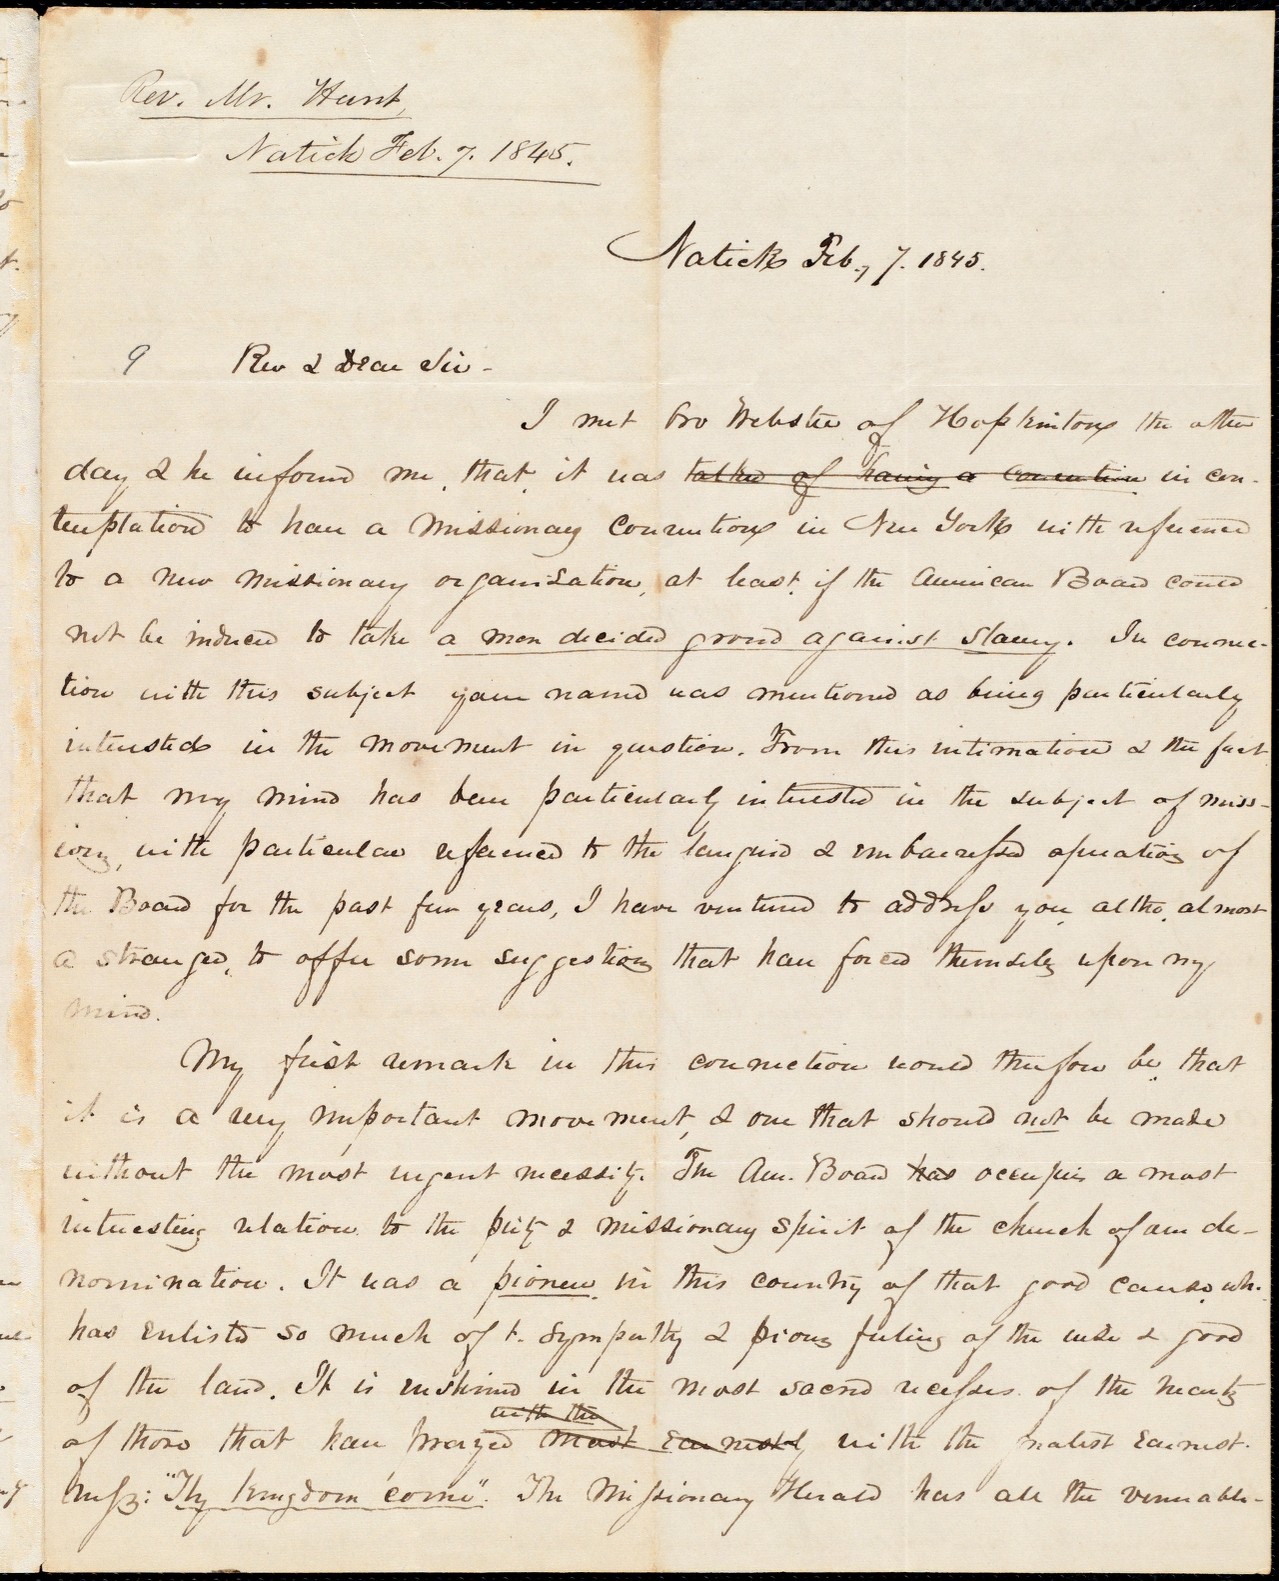 Rev. Mr. Hunt,
Natick Feb. 7. 1845.
Natick Feb., 7. 1845.
9 Rev & Dear Sir -
I met Bro Webster of Hopkinton the other
day & he informd me, that, it was talked of having a Convention in con-
templation to have a Missionary Convention in New York with reference
to a new Missionary organisation, at least, if the American Board could
not be induced to take a more decided ground against slavery. In connec-
tion with this subject your name was mentioned as being particularly
interested in the movement in question. From this intimation & the fact
that my mind has been particularly interested in the subject of miss-
ions, with particular reference to the languid & embarrassed operations of
the Board for the past few years, I have ventured to address you, altho, almost
a stranger, to offer some suggestions that have forced themselves upon my
mind.
My first remark in this connection would therefore be, that
it is a very important movement, & one that should not be made
without the most urgent necessity. The Am. Board has occupies a most
interesting relation to the piety & missionary spirit of the church of our de-
nomination. It was a pioneer in this country of that good cause, wh.
has enlisted so much of t. sympathy & pious feeling of the wise & good
of the land. It is enshrined in the most sacred recesses of the hearts
with the
of those that have prayed most earnestly with the greatest earnest-
ness: "Thy kingdom come". The Missionary Herald has all the venerable-